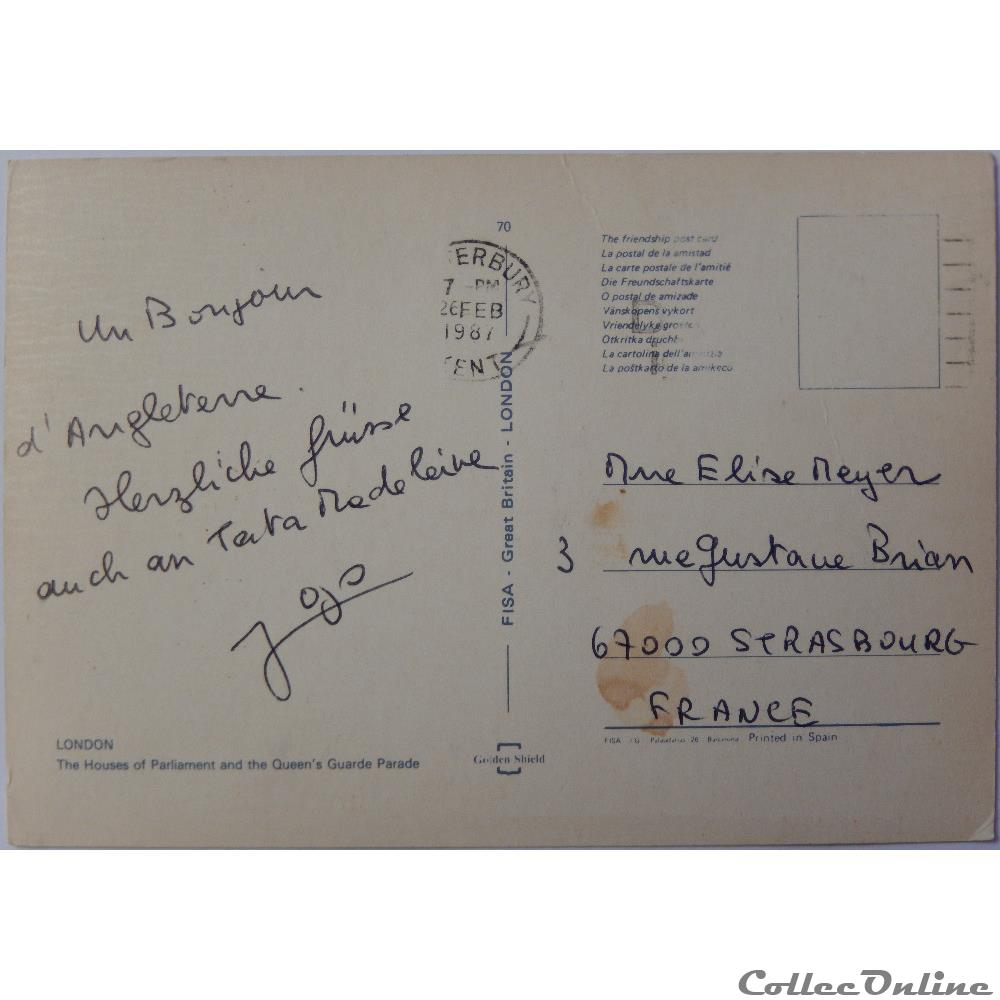 Un Bonjour
d'Angleterre.
Herzliche Grüsse
auch an Tata Madeleine
70
TERBURY
7 -PM
26 FEB
1987
KENT
FISA - Great Britain - LONDON
The friendship post card
La postal de la amistad
La carte postale de l'amitié
Die Freundschaftskarte
O postal de amizade
Vänskapens vykort
Vriendelyke groeten
Otkritka druchbi
La cartolina dell'amicizia
La poŝtkarto de la amikeco
Mme Elise Meyer
3 rue Gustave Brion
67000 STRASBOURG
FRANCE
FISA Palaudarias 26 Barcelona Printed in Spain
LONDON
The Houses of Parliament and the Queen's Guarde Parade
Golden Shield
CollecOnline